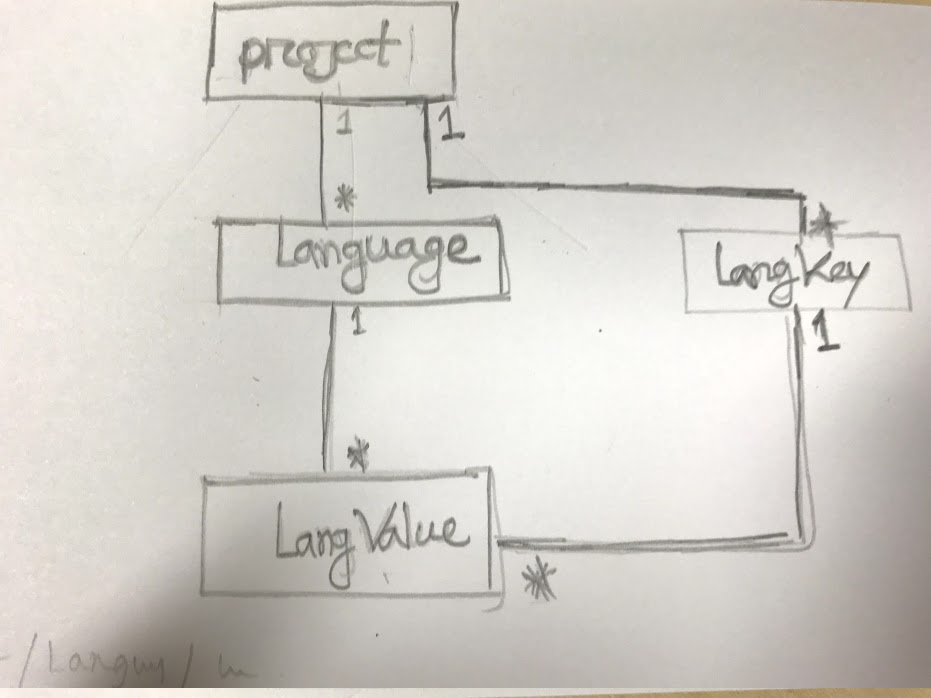 project
1 1
*
*
Language
Lang Key
1
1
*
Lang Value
*